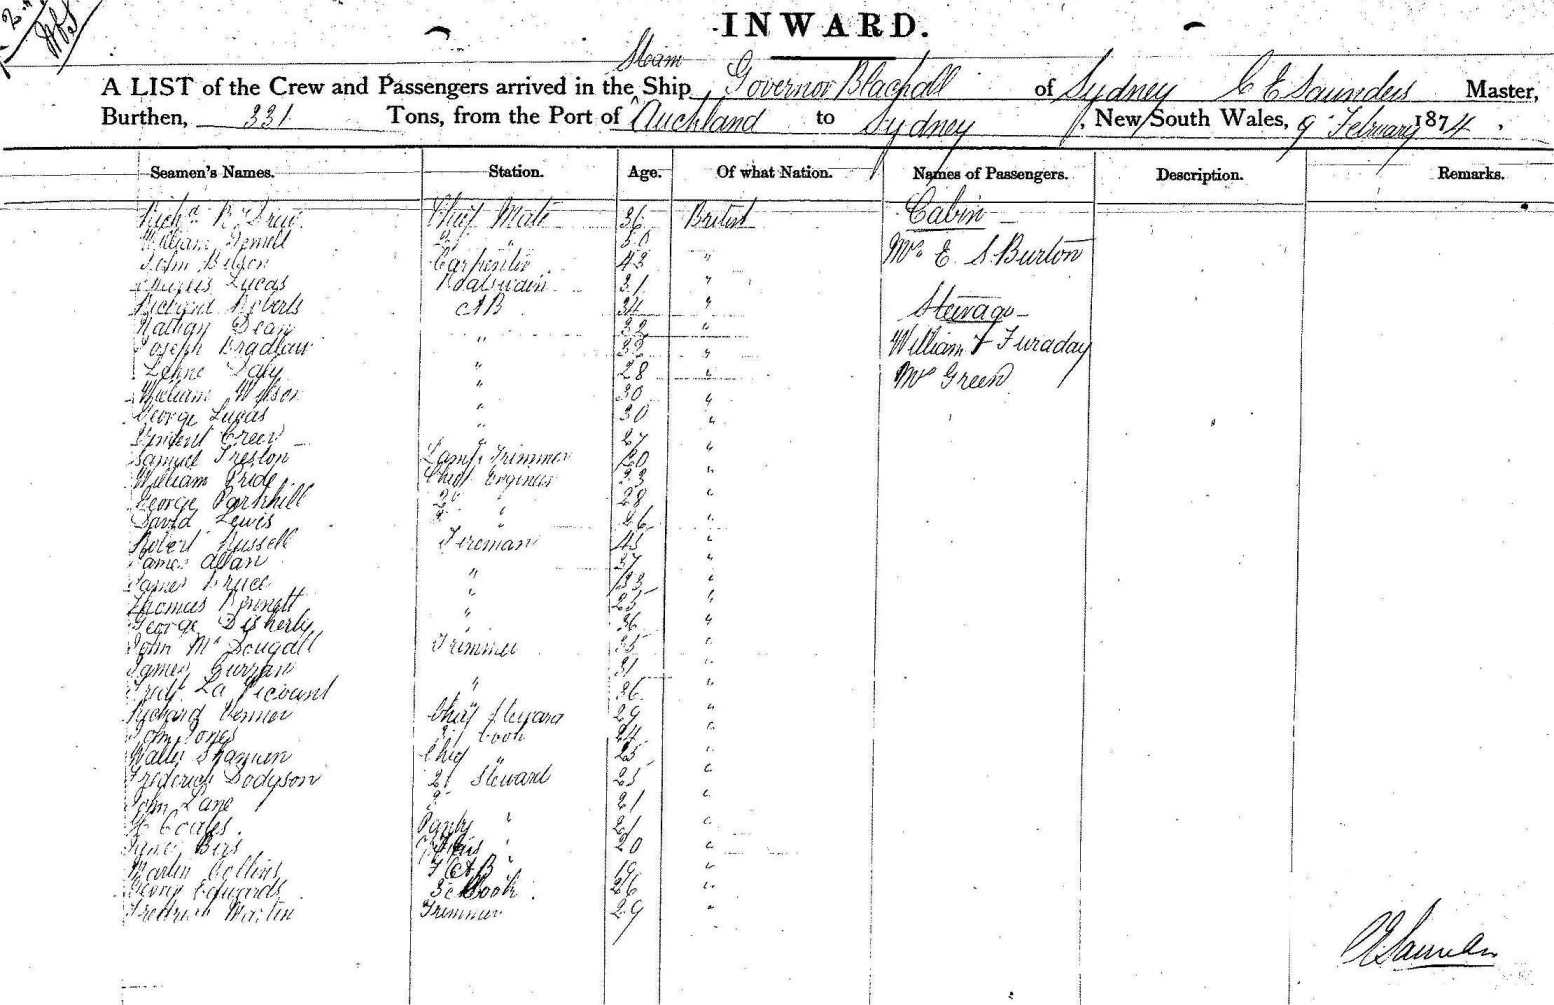 INWARD.
Steam
A LIST of the Crew and Passengers arrived in the Ship Governor Blackall of Sydney C E Saunders Master,
Burthen, 331 Tons, from the Port of Auckland to Sydney, New South Wales, 9 February 1874.
Seamen's Names. Station. Age. Of what Nation. Names of Passengers. Description. Remarks.
Richd R Drew Chief Mate 36 British Cabin
William 2d " 50 "
John Carpenter 43 " Mrs E. S. Burton
Charles Lucas Boatswain 31 "
Richard Roberts AB 34 " Steerage
Nathan Dean 32 "
Joseph Bradlaw " 32 " William F Furaday
Daly " 28 " Mrs Green
William Wilson " 30 "
George Lucas " 30 "
Green " 27 "
Samuel Preston Lamp Trimmer 20 "
William Pride Chief Engineer 33 "
George Parkhill 2d " 28 "
David Lewis 3 " 26 "
Robert Russell Fireman 45 "
James Allan 37 "
James Bruce " 33 "
Thomas Bennett " 25 "
George " 36 "
John McDougall Trimmer 35 "
James Curran 31 "
Fredk La " 36 "
Richard Vernon Chief Steward 29 "
John Jones 2d Cook 24 "
Walter Chief " 25 "
Frederick Dodgson 2d Steward 25 "
John Lane 3 21 "
H Coates Pantry " 21 "
20 "
Martin Collins 19 "
George Edwards Cook 26 "
Fredrick Martin Trimmer 29 "
C E Saunders